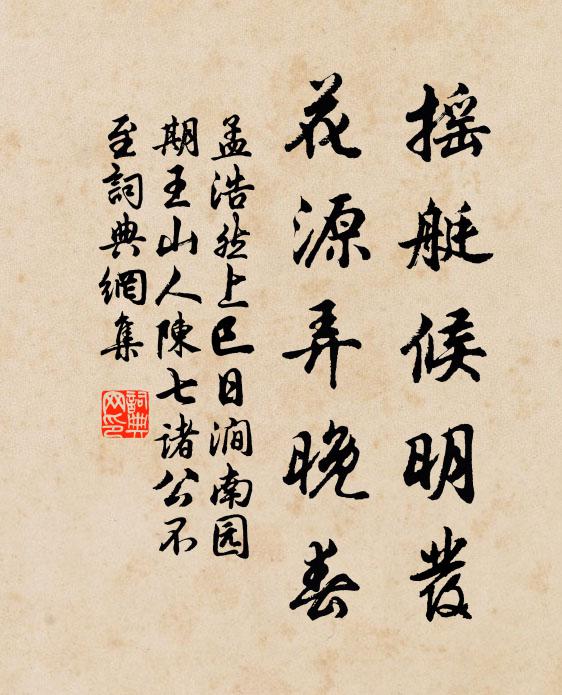 摇艇候明發
花源弄晚春
孟浩然上巳日涧南园
期王山人陳七诸公不
至詞典網集
詞典
网印